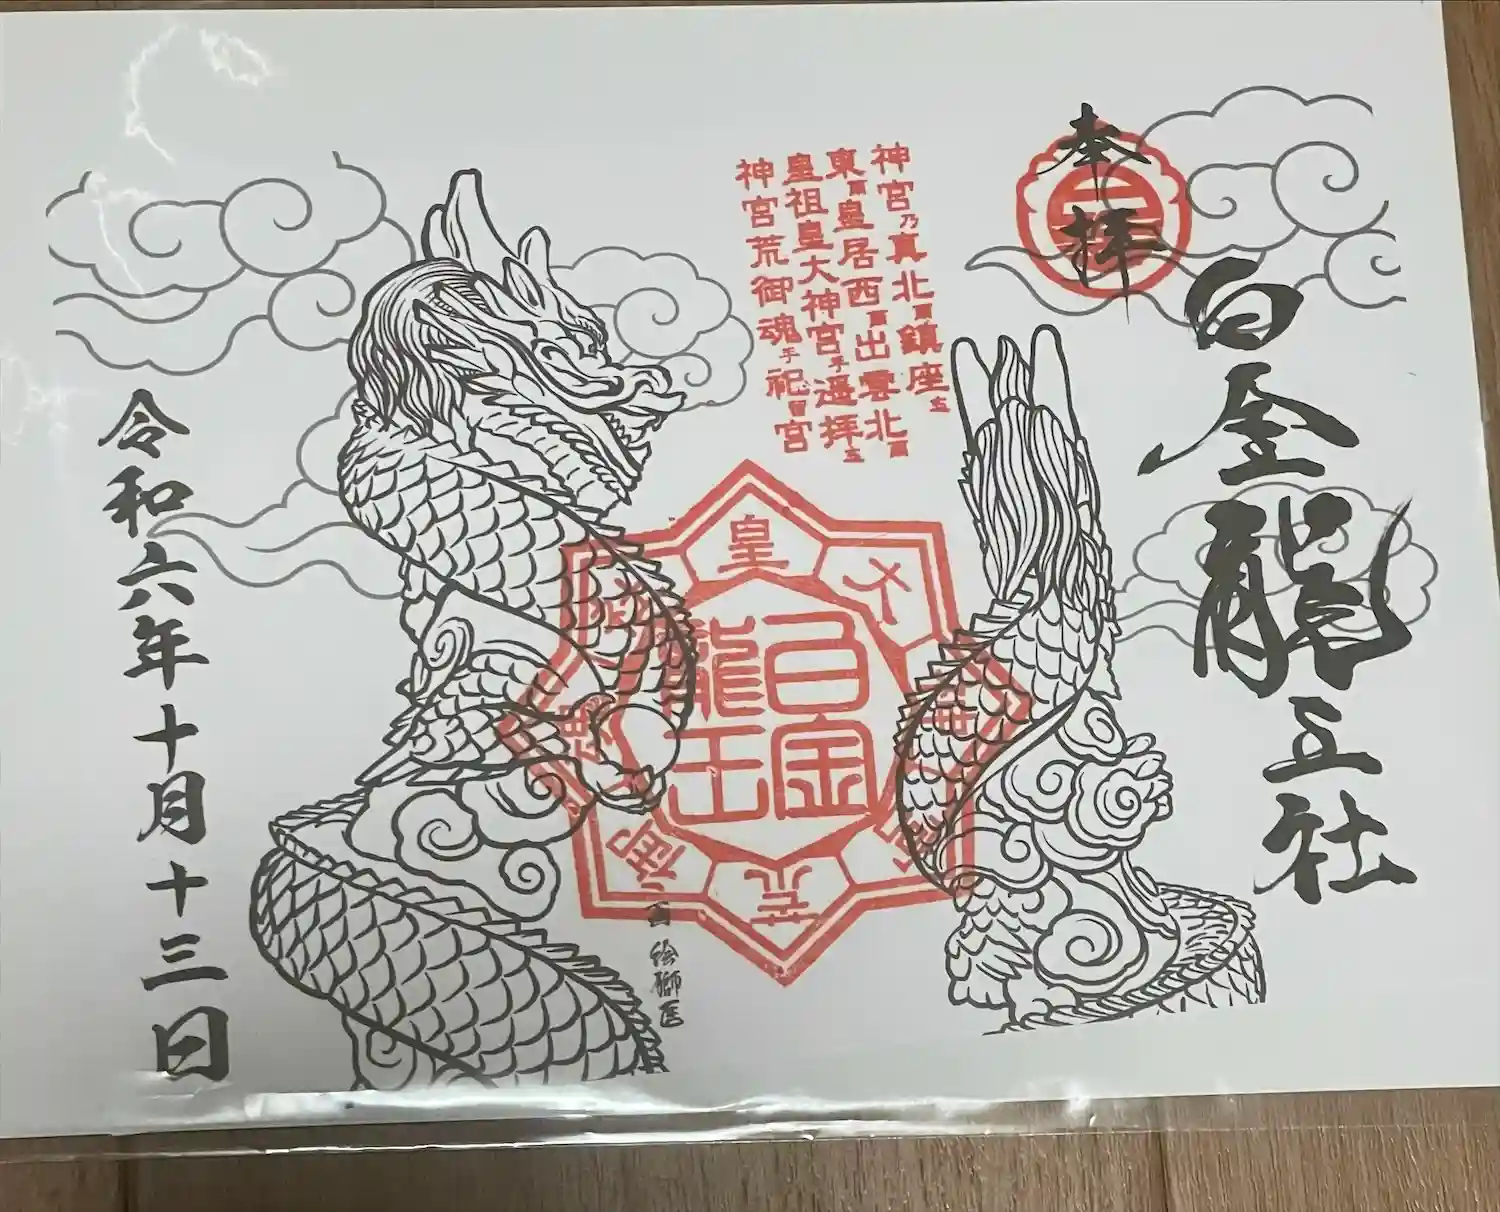 奉拝
白金龍王社
神宮乃真北爾鎮座弖
東爾皇居西爾出雲北爾
皇祖皇大神宮乎遥拝弖
神宮荒御魂乎祀留宮
白金
龍王
皇
荒
御
画 絵獅匠
令和六年十月十三日